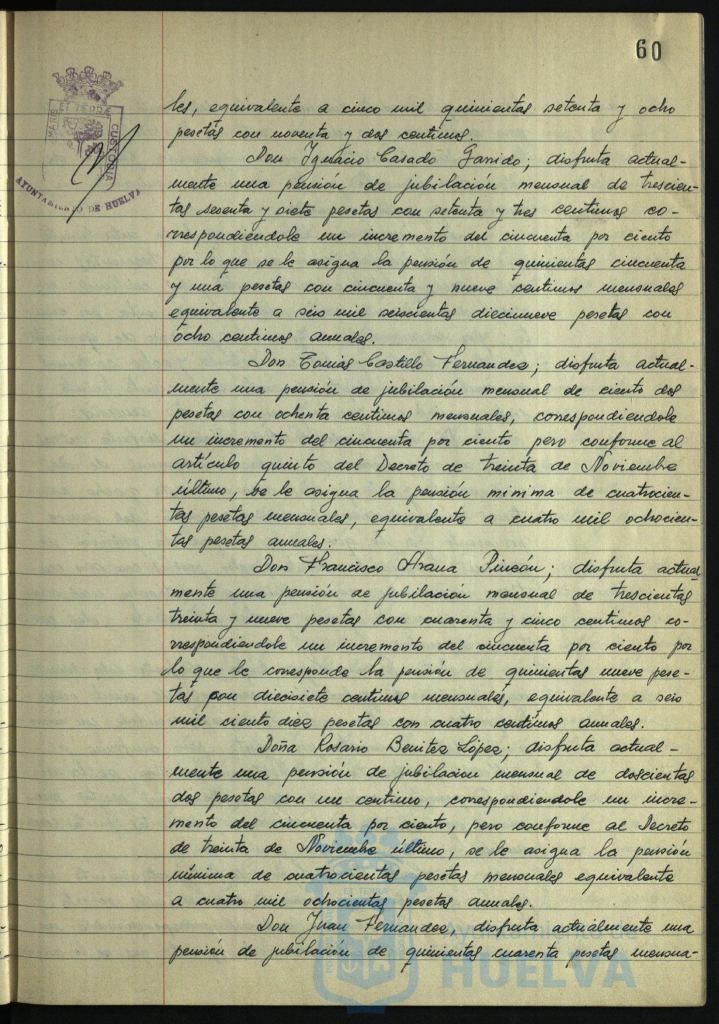 60
les, equivalente a cinco mil quinientas setenta y ocho
pesetas con noventa y dos centimos.
Don Ignacio Casado Garrido; disfruta actual-
mente una pensión de jubilación mensual de trescien-
tas sesenta y siete pesetas con setenta y tres centimos co-
rrespondiendole un incremento del cincuenta por ciento
por lo que se le asigna la pensión de quinientas cincuenta
y una pesetas con cincuenta y nueve centimos mensuales
equivalente a seis mil seiscientas diecinueve pesetas con
ocho centimos anuales.
Don Tomás Castillo Fernandez; disfruta actual-
mente una pensión de jubilación mensual de ciento dos
pesetas con ochenta centimos mensuales, correspondiendole
un incremento del cincuenta por ciento pero conforme al
artículo quinto del Decreto de treinta de Noviembre
último, se le asigna la pensión minima de cuatrocien-
tas pesetas mensuales, equivalente a cuatro mil ochocien-
tas pesetas anuales.
Don Francisco Arana Pinzón; disfruta actual-
mente una pensión de jubilación mensual de trescientas
treinta y nueve pesetas con cuarenta y cinco centimos co-
rrespondiendole un incremento del cincuenta por ciento por
lo que le corresponde la pensión de quinientas nueve pese-
tas con diecisiete centimos mensuales, equivalente a seis
mil ciento diez pesetas con cuatro centimos anuales.
Doña Rosario Benitez López; disfruta actual-
mente una pensión de jubilacion mensual de doscientas
dos pesetas con un centimo, correspondiendole un incre-
mento del cincuenta por ciento, pero conforme al Decreto
de treinta de Noviembre último, se le asigna la pensión
mínima de cuatrocientas pesetas mensuales equivalente
a cuatro mil ochocientas pesetas anuales.
Don Juan Fernandez, disfruta actualmente una
pensión de jubilación de quinientas cuarenta pesetas mensua-
PORTUS MARIS ET TERRÆ CUSTODIA
AYUNTAMIENTO DE HUELVA
HUELVA